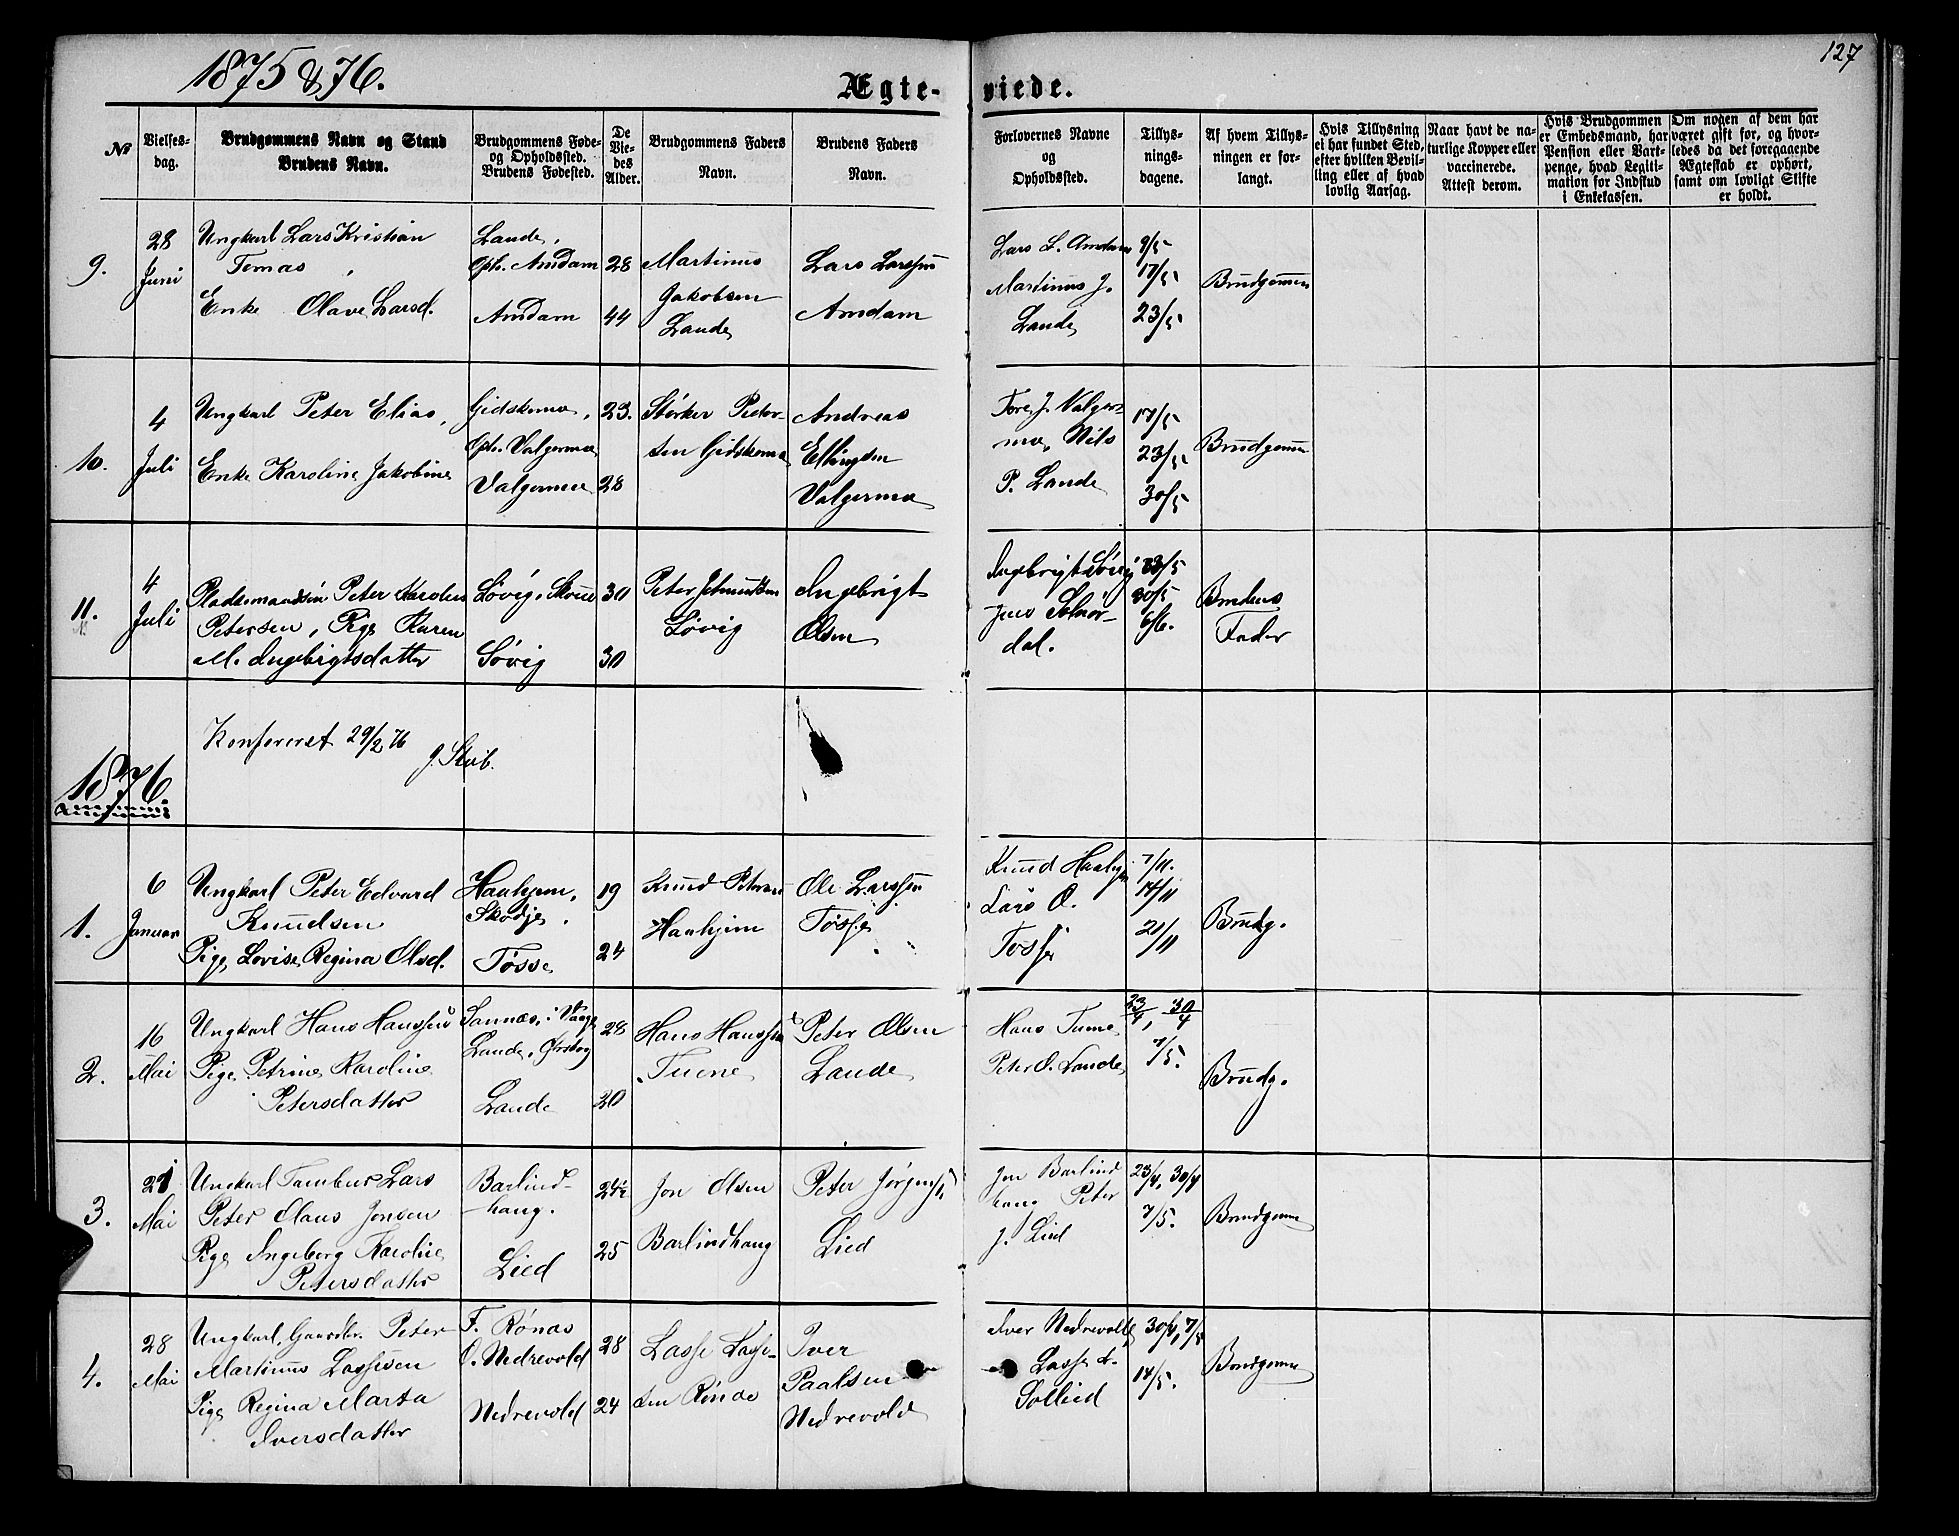 1875 & 76.
Ægte-
viede.
127
No
Vielses-
dag.
Brudgommens Navn og Stand
Brudens Navn.
Brudgommens Føde-
og Opholdssted.
Brudens Fødested.
De
Vie-
des
Alder.
Brudgommens Faders
Navn.
Brudens Faders
Navn.
Forlovernes Navne
og
Opholdssted.
Tillys-
nings-
dagene.
Af hvem Tillys-
ningen er for-
langt.
Hvis Tillysning
ei har fundet Sted,
efter hvilken Bevil-
ling eller af hvad
lovlig Aarsag.
Naar havt de na-
turlige Kopper eller
vaccinerede.
Attest derom.
Hvis Brudgommen
er Embedsmand, har
Pension eller Vart-
penge, hvad Legiti-
mation for Indskud
i Enkekassen.
Om nogen af dem har
været gift før, og hvor-
ledes da det foregaaende
Ægteskab er ophørt,
samt om lovligt Skifte
er holdt.
9.
28
Juni
Ungkarl Lars Kristian
Tomas
Enke Olave Larsd.
Lande,
Oph. Amdam
Amdam
28
44
Martinus
Jakobsen
Lande
Lars Larssen
Amdam
Lars L. Amdam
Martinus J.
Lande
9/5
17/5
23/5
Brudgomen
10.
4
Juli
Ungkarl Peter Elias,
Enke Karoline Jakobine
Gidskemo,
Oph. Valgermo
Valgermo
23.
28
Størker Peder-
sen Gidskemo
Andreas
Ellingsen
Valgermo
Tore J. Valger-
mo, Nils
P. Lande
17/5
23/5
30/5
Brudgomen
11.
4
Juli
Pladsemandsøn Peter Karolus
Petersen, Pige Karen
M. Ingebrigtsdatter
Løvig, Skoue
Søvig
30
30
Peter
Løvig
Ingebrigt
Olsen
Ingebrigt Søvig
Jens Solnør-
dal.
23/5
30/5
6/6.
Brudens
Fader
Konfereret 29/2 76
J. Stub.
1876
1.
6
Januar
Ungkarl Peter Edvard
Knudsen
Pige Lovise Regina Olsd.
Hauhjem,
Skodje.
Tøsse
19
24
Knud Petersen
Hauhjem
Ole Larssen
Tøsse
Knud Hauhjem
Lars O.
Tøsse
7/11.
14/11
21/11
Brudg.
2.
16
Mai
Ungkarl Hans Hanssen
Pige Petrine Karoline
Petersdatter
Sannæs, i Vaage
Lande, Ørskog
Lande
28
20
Hans Hanssen
Tuene
Peter Olsen
Lande
Hans Tuene
Peter O. Lande
23/4, 30/4
7/5.
Brudg.
3.
21
Mai
Ungkarl Tambur Lars
Peter Claus Jonsen
Pige Ingeborg Karoline
Petersdatter
Barlind-
haug.
Lied
24½
25
Jon Olsen
Barlindhaug
Peter Jørgens.
Lied
Jon Barlind
haug Peter
J. Lied
23/4, 30/4
7/5.
Brudgomen
4.
28
Mai
Ungkarl, Gaardbr. Peter
Martinus Lassesen
Pige Regina Marta
Iversdatter
F. Rønæs
O. Nedrevold
Nedrevold
28
24
Lasse Lasse-
sen Rønæs
Iver
Paalsen
Nedrevold
Iver Nedrevold
Lasse L.
Sollied
30/4, 7/5
14/5.
Brudgomen